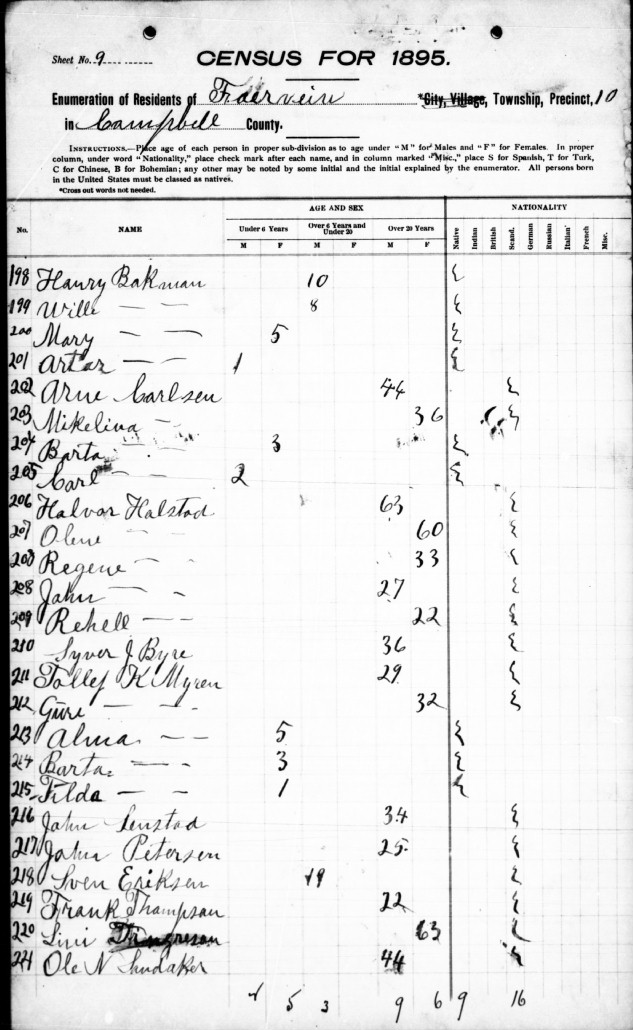 Sheet No. 9
CENSUS FOR 1895.
Enumeration of Residents of *City, Village, Township, Precinct, 10
in Campbell County.
INSTRUCTIONS.—Place age of each person in proper sub-division as to age under "M" for Males and "F" for Females. In proper
column, under word "Nationality," place check mark after each name, and in column marked "Misc.," place S for Spanish, T for Turk,
C for Chinese, B for Bohemian; any other may be noted by some initial and the initial explained by the enumerator. All persons born
in the United States must be classed as natives.
*Cross out words not needed.
AGE AND SEX NATIONALITY
No. NAME Under 6 Years Over 6 Years and Under 20 Over 20 Years Native Indian British Scand. German Russian Italian French Misc.
M F M F M F
198 Hanry Bakman 10
199 Wille — — 8
200 Mary — — 5
201 Artar — — 1
202 Arne Carlsen 44
203 Mikelina — 36
204 Barta — 3
205 Carl — 2
206 Halvor Halstad 63
207 Olene — 60
208 Regene — — 33
208 John — — 27
209 Rehell — — 22
210 Syver J Byre 36
211 Tollef K Myren 29
212 Gure — — 32
213 Alma — — 5
214 Barta — — 3
215 Tilda — — 1
216 John 34
217 John Petersen 25
218 Sven Eriksen 19
219 Frank Thampson 22
220 63
221 Ole N 44
5 3 9 6 9 16